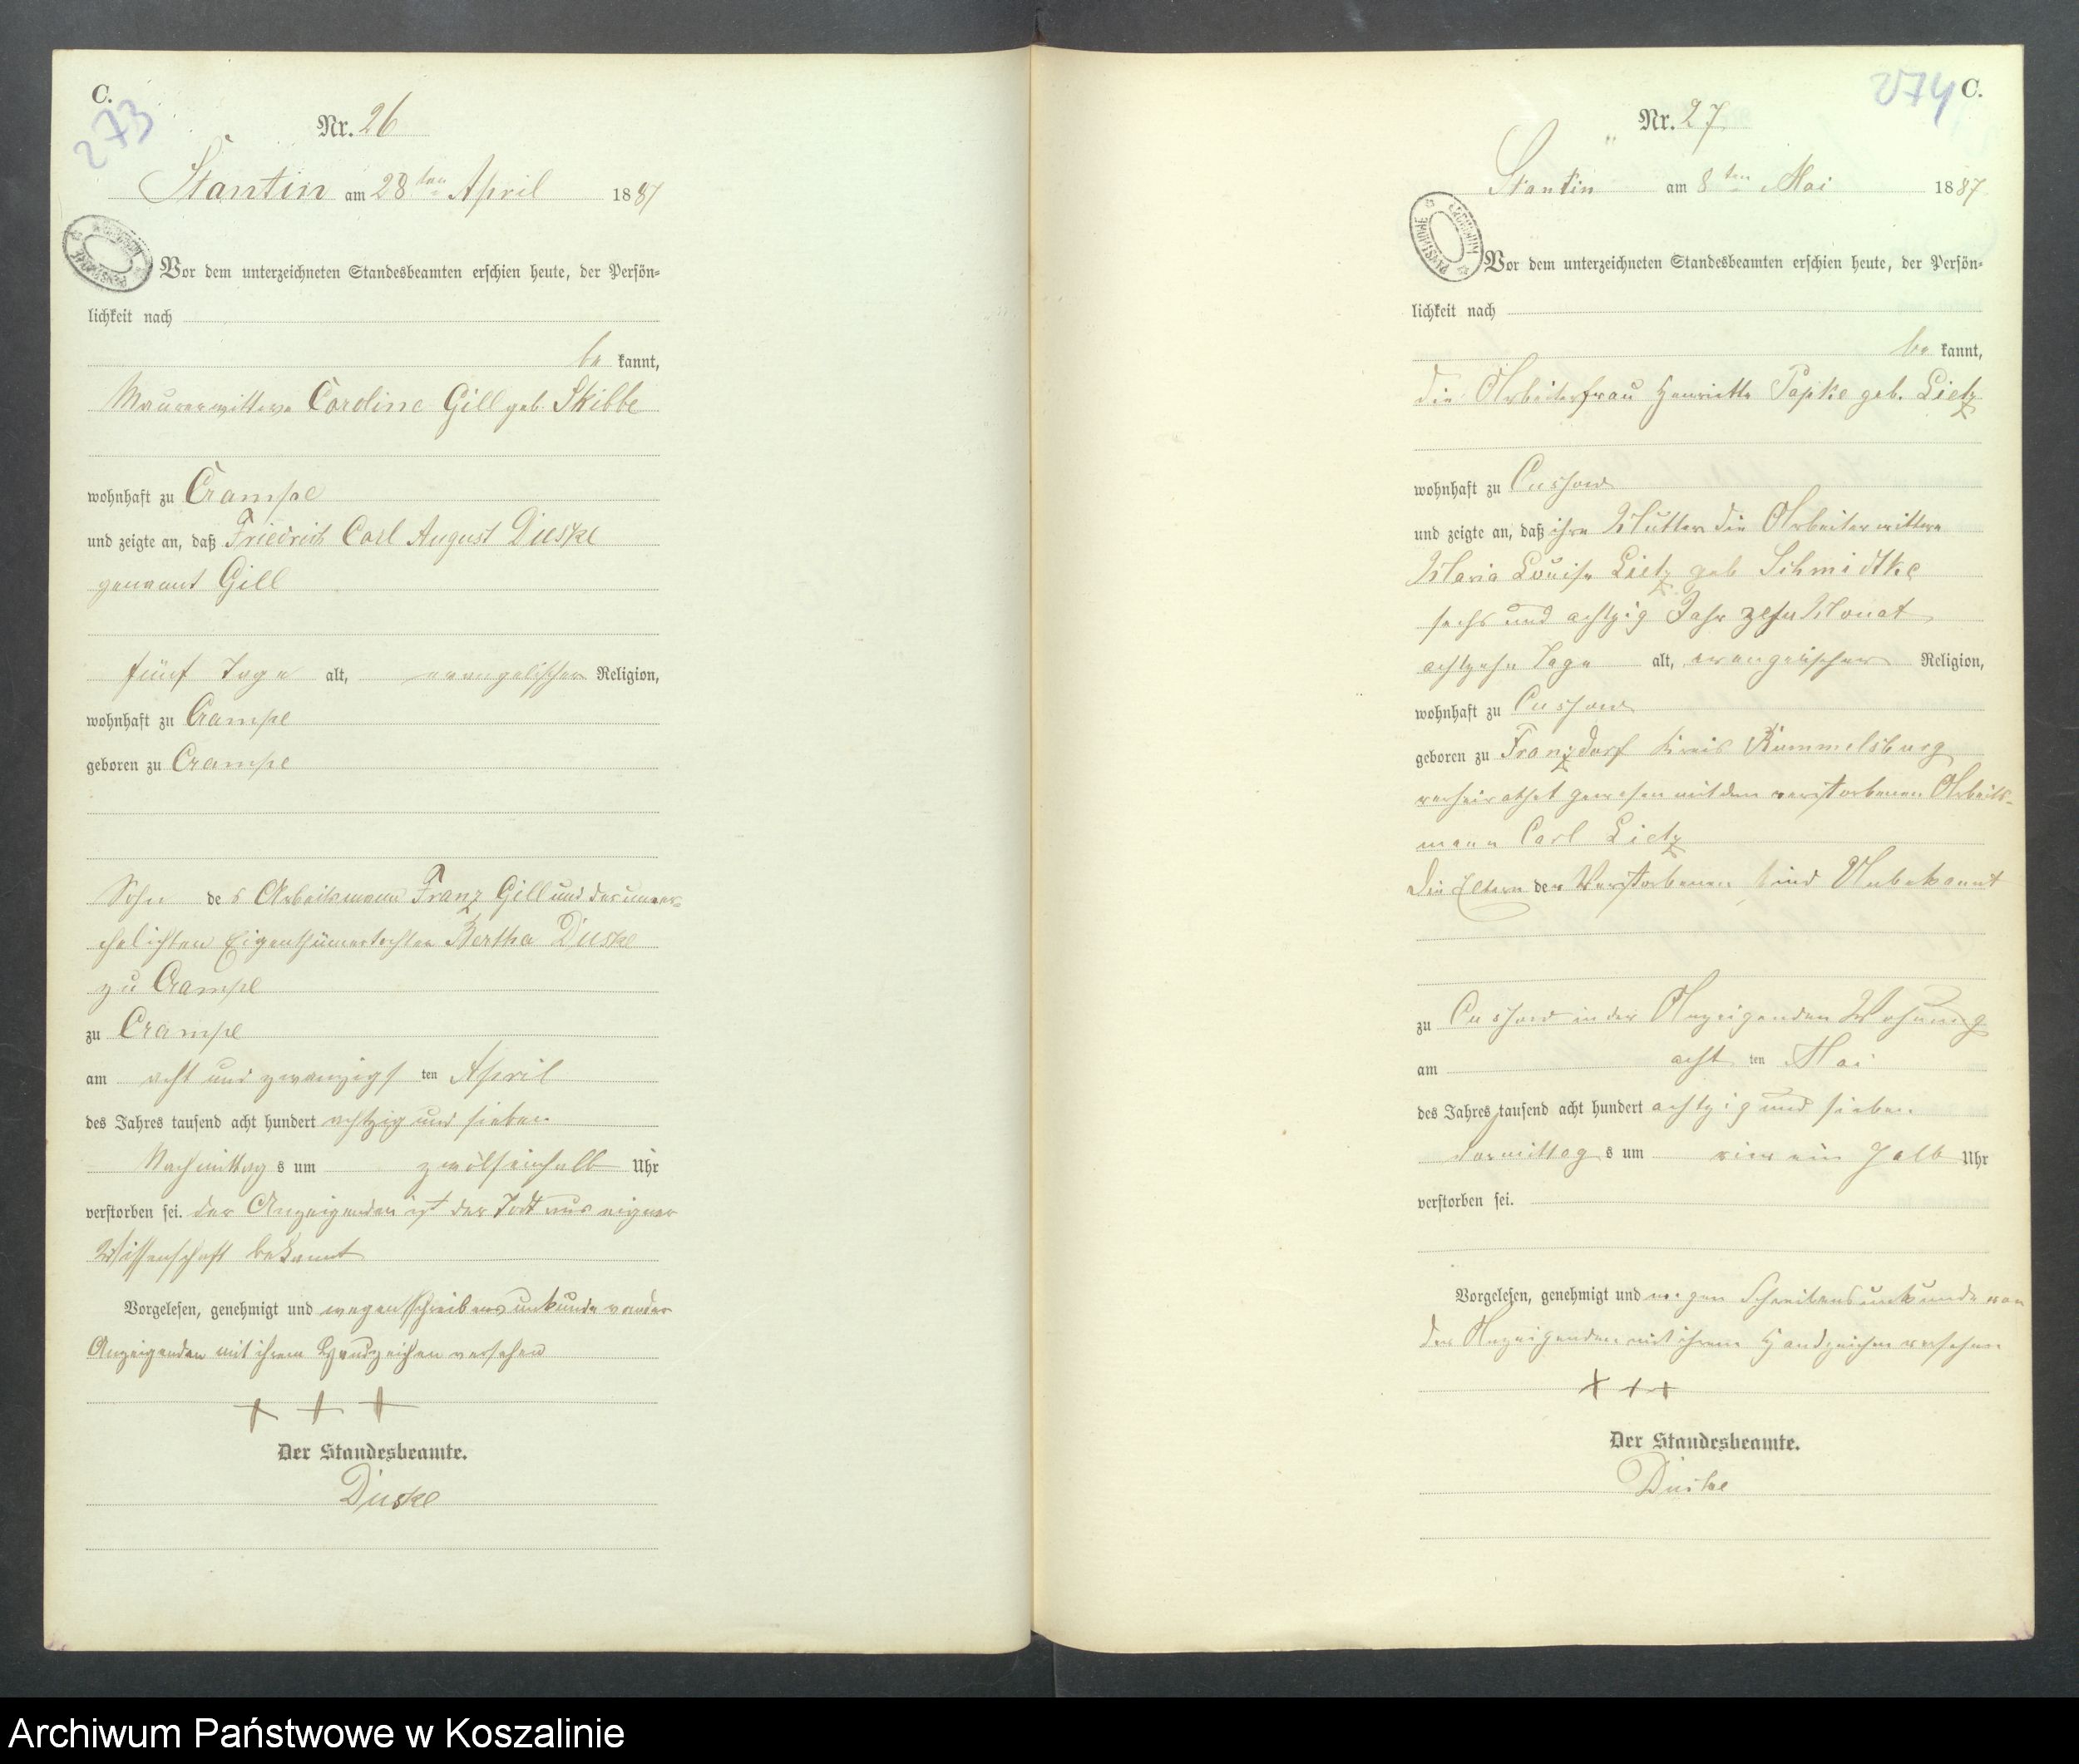 C.
273
Nr. 26
Stantin am 28ten April 1887
Vor dem unterzeichneten Standesbeamten erschien heute, der Persön=
lichkeit nach
be kannt,
Maurerwittwe Caroline Gill geb. Skibbe
wohnhaft zu Crampe
und zeigte an, daß Friedrich Carl August Duske
genannt Gill
fünf Tage alt, evangelischer Religion,
wohnhaft zu Crampe
geboren zu Crampe
Sohn des Arbeitsmann Franz Gill und der unver=
ehelichten Eigenthümertochter Bertha Duske
zu Crampe
zu Crampe
am acht und zwanzigs ten April
des Jahres tausend acht hundert achtzig und sieben
Nachmittag s um zwölfeinhalb Uhr
verstorben sei. der Anzeigenden ist der Todt aus eigner
Wissenschaft bekannt
Vorgelesen, genehmigt und wegen Schreibensunkunde von der
Anzeigenden mit ihrem Handzeichen versehen
+ + +
Der Standesbeamte.
Duske
274 C.
Nr. 27
Stantin am 8ten Mai 1887
Vor dem unterzeichneten Standesbeamten erschien heute, der Persön=
lichkeit nach
be kannt,
die Arbeiterfrau Henriette Papke geb. Lietz
wohnhaft zu Cussow
und zeigte an, daß ihre Mutter die Arbeiterwittwe
Maria Louise Lietz geb Schmidtke
sechs und achtzig Jahr zehn Monat
achtzehn Tage alt, evangelischer Religion,
wohnhaft zu Cussow
geboren zu Franzdorf Kreis Rummelsburg
verheirathet gewesen mit dem verstorbenen Arbeits-
mann Carl Lietz
Die Eltern der Verstorbenen sind Unbekannt
zu Cussow in der Anzeigenden Wohnung
am acht ten Mai
des Jahres tausend acht hundert achtzig und sieben
Vormittag s um vier ein halb Uhr
verstorben sei.
Vorgelesen, genehmigt und wegen Schreibensunkunde von
der Anzeigenden mit ihrem Handzeichen versehen
+ + +
Der Standesbeamte.
Duske
Archiwum Państwowe w Koszalinie